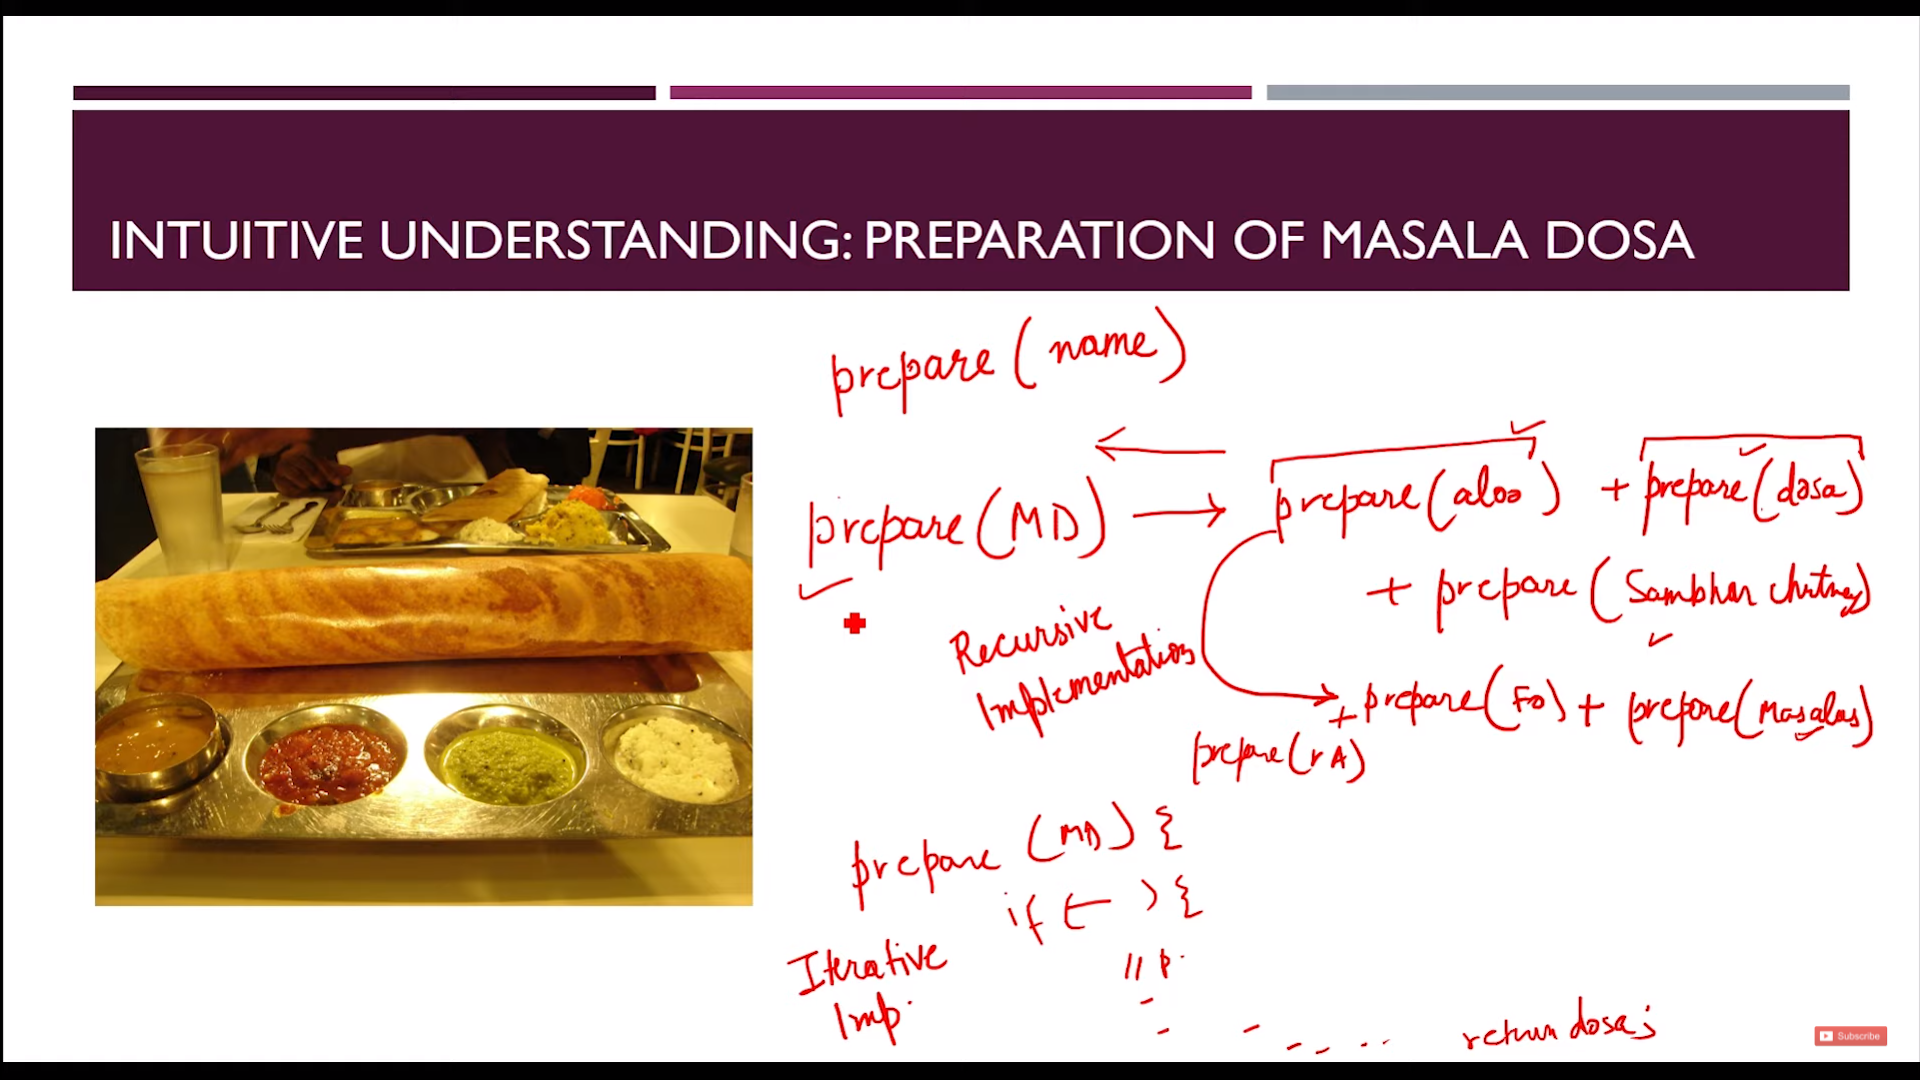 INTUITIVE UNDERSTANDING: PREPARATION OF MASALA DOSA
prepare (name)
prepare (MD) → prepare (aloo) + prepare (dosa)
+ prepare (Sambhar chutney)
Recursive
Implementation
+ prepare (FO) + prepare (Masalas)
prepare (rA)
prepare (MD) {
if ( ) {
// p.
Iterative
Imp.
return dosa;
Subscribe